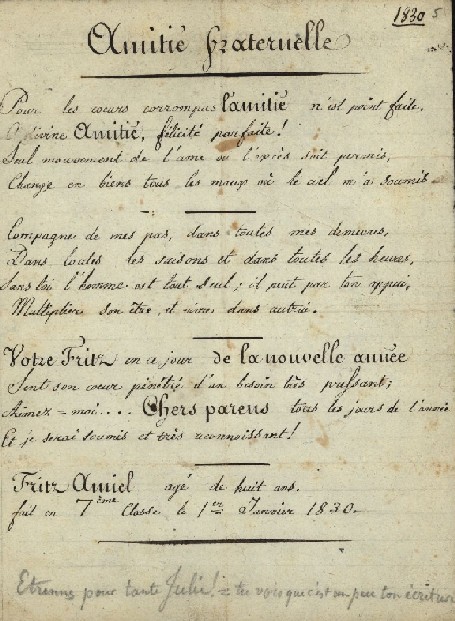 1830 5
Amitié fraternelle
Pour les cœurs corrompus l'amitié n'est point faite.
O divine Amitié, félicité parfaite!
Seul mouvement de l'ame où l'excès soit permis,
Change en biens tous les maux où le ciel m'a soumis
Compagne de mes pas, dans toutes mes demeures,
Dans toutes les saisons et dans toutes les heures,
Sans toi l'homme est tout seul; il peut par ton appui,
Multiplier son être, et vivre dans autrui.
Votre Fritz en ce jour de la nouvelle année
Sent son cœur pénétré d'un besoin très puissant;
Aimez=moi.... Chers parens tous les jours de l'année
Et je serai soumis et très reconnoissant!
Fritz Amiel agé de huit ans.
fait en 7ème Classe le 1er Janvier 1830.
Etrennes pour tante Julie! = tu vois que c'est un peu ton écriture